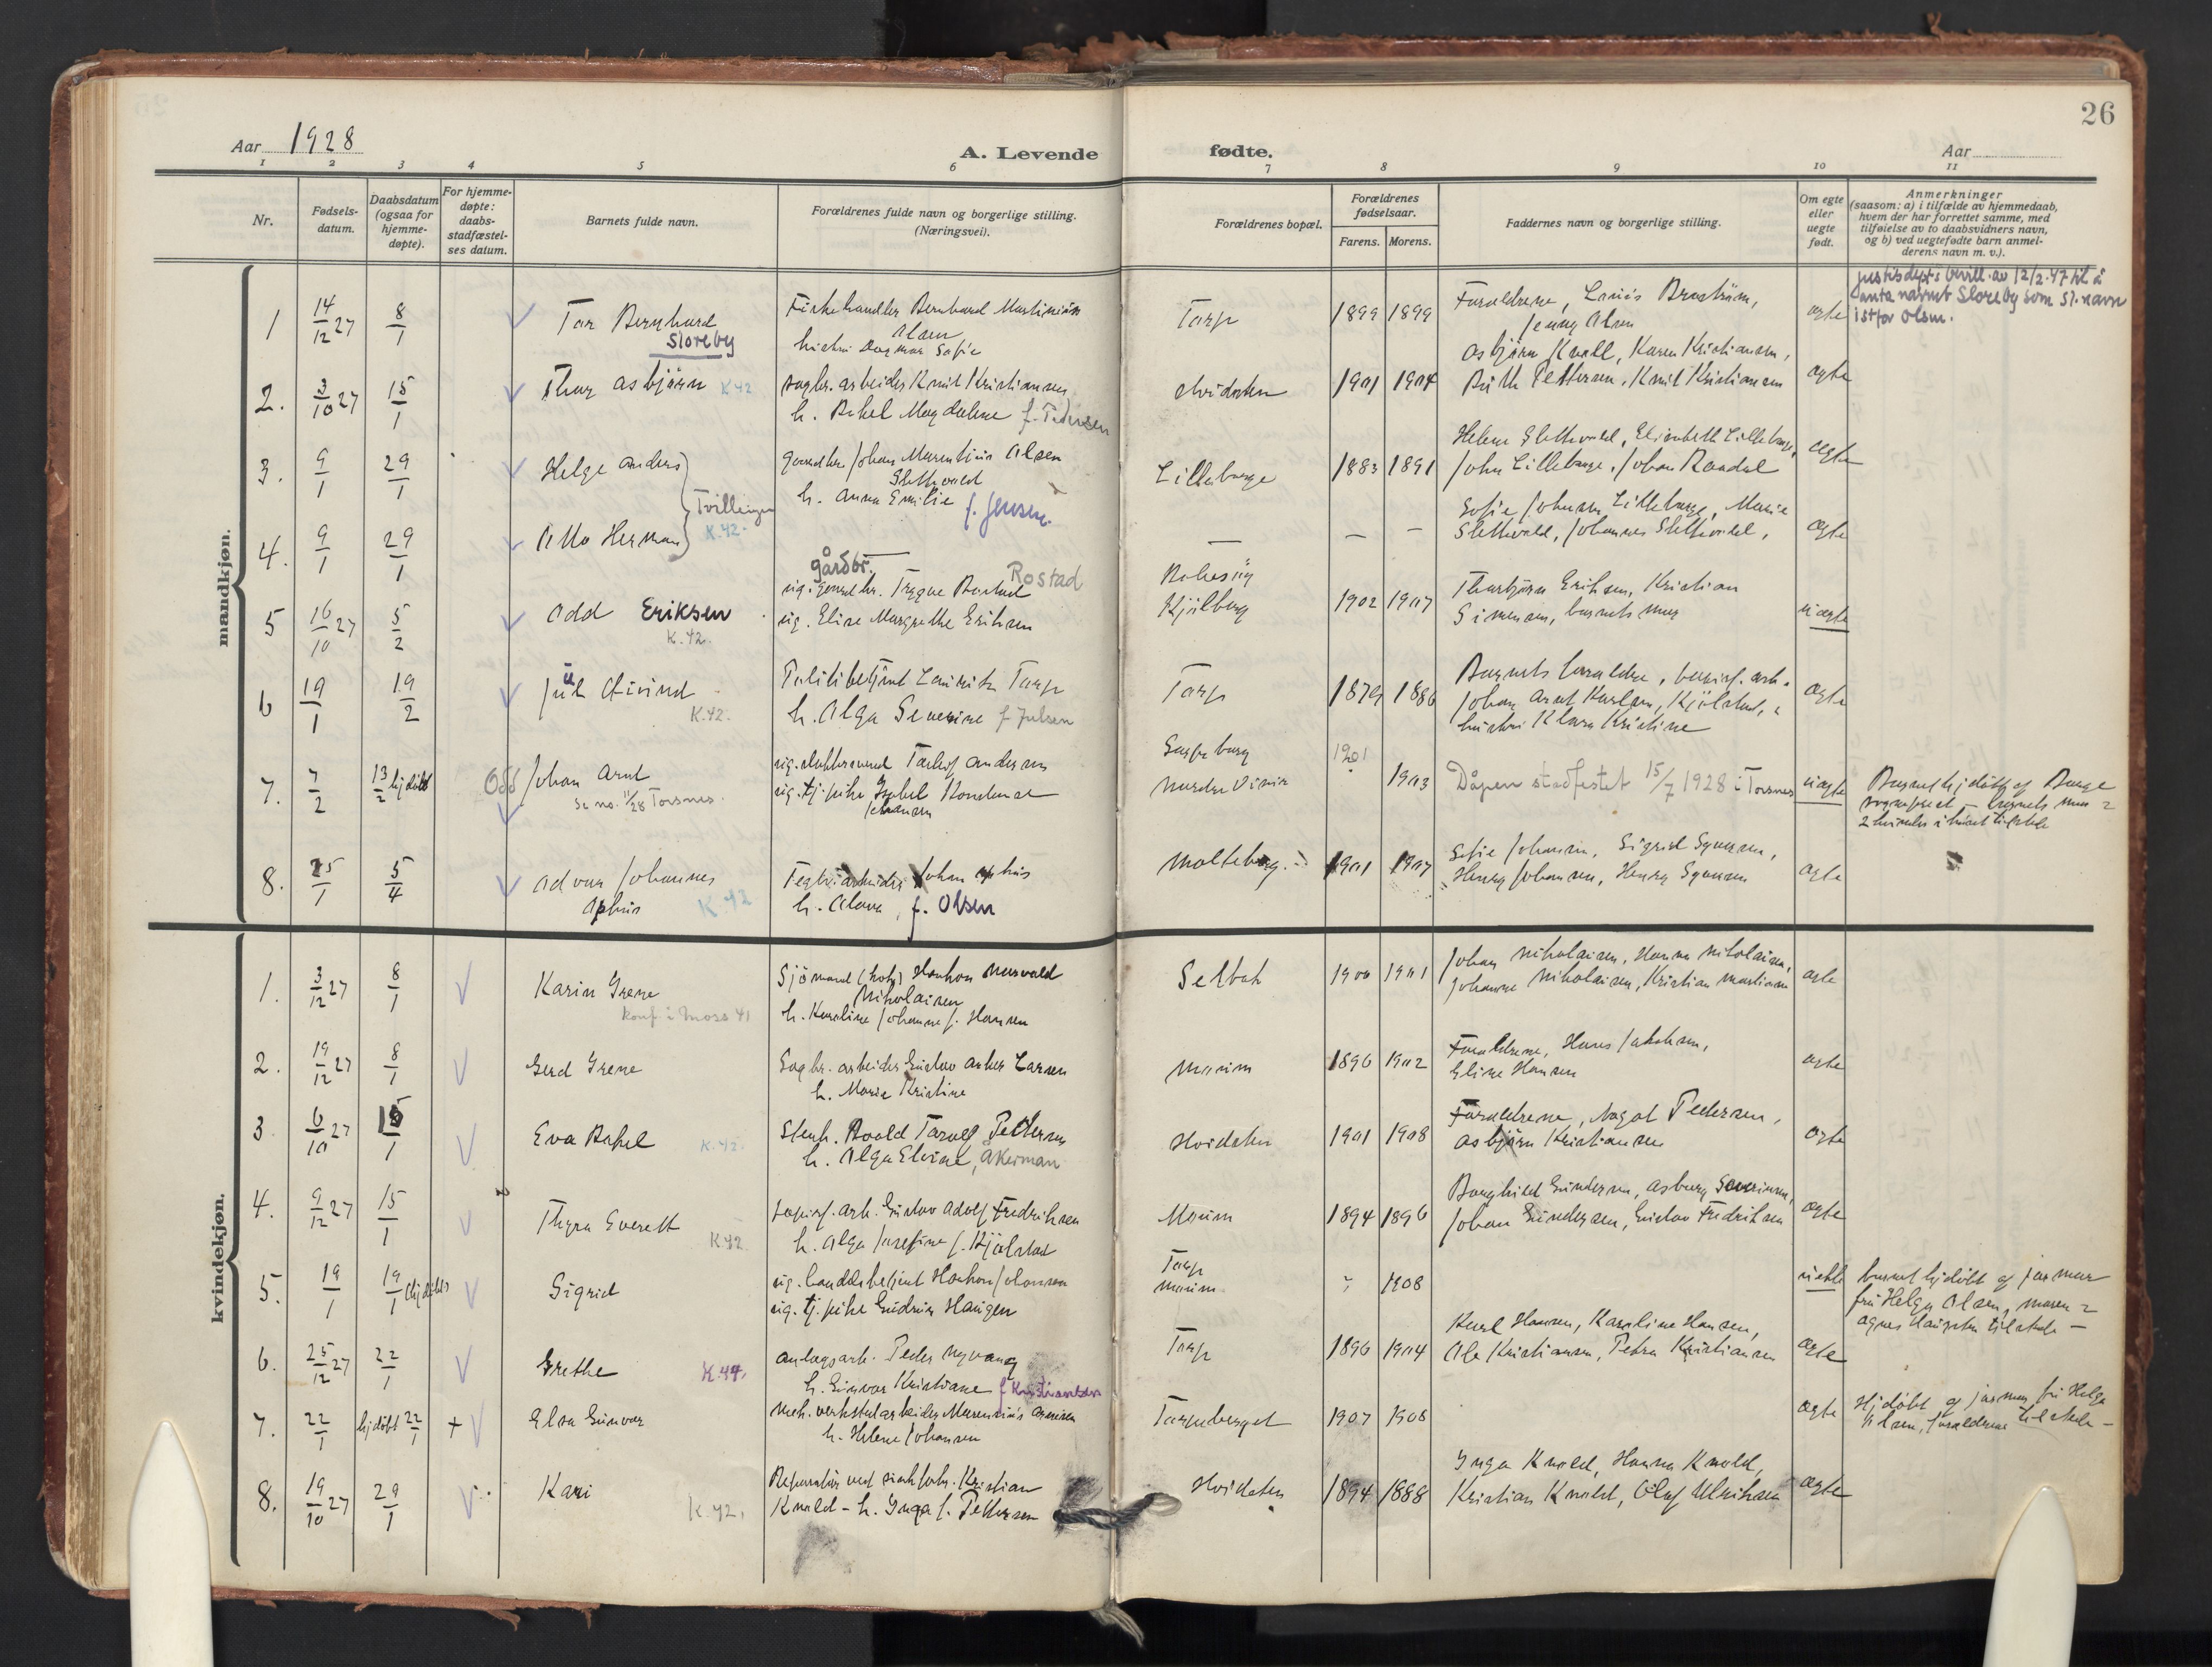 26
Aar 1928
A. Levende
fødte.
Aar
1 2 3 4 5 6 7 8 9 10 11
Nr.
Fødsels-
datum.
Daabsdatum
(ogsaa for
hjemme-
døpte).
For hjemme-
døpte:
daabs-
stadfæstel-
ses datum.
Barnets fulde navn.
Forældrenes fulde navn og borgerlige stilling.
(Næringsvei).
Forældrenes bopæl.
Forældrenes
fødselsaar.
Farens. Morens.
Faddernes navn og borgerlige stilling.
Om egte
eller
uegte
født.
Anmerkninger
(saasom: a) i tilfælde av hjemmedaab,
hvem der har forrettet samme, med
tilføielse av to daabsvidners navn,
og b) ved uegtefødte barn anmel-
derens navn m. v.).
mandkjøn.
1 14/12 27 8/1 Tor Bernhard
Sloreby
Fiskehandler Bernhard Martinius
Olsen
hustru Dagmar Sofie
Torp 1899 1899
Forældrene,
Jenny Olsen
ægte
justisdept.s bevill. av 12/2.47 til å
anta navnet Sloreby som sl.navn
istfor Olsen.
2. 3/10 27 15/1 Thor Asbjørn K.42
sagbr. arbeider Knut Kristiansen
h. Rakel Magdalene f. Pedersen
Hvidsten 1901 1904
Asbjørn Knold, Karen Kristiansen,
Ruth Pettersen, Knut Kristiansen
ægte
3. 9/1 29/1 Helge Anders
Tvillinger
gaardbr. Johan Marentius Olsen
Slettevold
h. Anna Emilie f. Jensen.
Lilleborge 1883 1891
Helene Slettevold, Elisabeth Lilleborge,
John Lilleborge, Johan Raadal
ægte
4. 9/1 29/1 Otto Herman K.42.
— — —
Sofie Johansen Lilleborge, Marie
Slettevold, Johannes Slettevold,
ægte
5 16/10 27 5/2 Odd Eriksen
K.42.
gårdbr. Rostad
ug. gaardbr. Trygve Rostad
ug. Elise Margrethe Eriksen
Rakesty
Kjølberg 1902 1907
Thorbjørn Eriksen, Kristian
Simensen, barnets mor
uægte
6 19/1 19/2 Jul Eivind
K.42.
Politibetjent Lauritz Torp
h. Olga Severine f. Julsen
Torp 1879 1886
Barnets forældre, papirf. arb.
Johan Arnt Karlsen, Kjølstad,
hustru Klara Kristine
ægte
7. 7/2 13/2 hjdøbt Odd Johan Arnt
Se no. 11/28 Torsnes.
ug. Torleif Andersen
ug. tj. pike Isabel Konstanse
Johansen
Sarpsborg
1901 1903
Dåpen stadfestet 15/7 1928 i Torsnes
uægte
Barnet hjdøbt af Borge
sogneprest — barnets mor
2 kvinder i huset tilstede
8. 25/1 5/4 Advar Johannes
Aphus K.42
Teglverkarbeider Johan Aphus
h. Alova, f. Olsen
Molteberg 1901 1907
Sofie Johansen, Sigrid Syversen,
Henry Johansen, Henry Syversen
ægte
kvindekjøn.
1. 3/12 27 8/1 Karin Irene
konf. i Moss 41
Sjømand (kok) Haakon Marvald
Nikolaisen
h. Karoline Johanne f. Hansen
Selbak 1900 1901
Johan Nikolaisen, Hanna Nikolaisen,
Johanne Nikolaisen, Kristian Martinsen
ægte
2. 19/12 27 8/1 Gerd Irene
Sagbr. arbeider Gustav Asker Larsen
h. Marie Kristine
Moum 1896 1902
Forældrene, Hans Jakobsen,
Eline Hansen
ægte
3. 6/10 27 15/1 Eva Rakel K.42.
Stenh. Roald Torolf Pettersen
h. Olga Elvine, Åkerman
Hvidsten 1901 1908
Forældrene, Magot Pedersen,
Asbjørn Kristiansen
ægte
4. 9/12 27 15/1 Thyra Everett
K.42
papirf. arb. Gustav Adolf Fredriksen
h. Olga Josefine f. Kjølstad
Moum 1894 1896
Borghild Gundersen, Asborg Severinsen,
Johan Gundersen, Gustav Fredriksen
ægte
5. 19/1 19/1 (hjdøbt) Sigrid
ug. handelsbetjent Haakon Johansen
ug. tj. pike Gudrun Haugen
Torp
Moum 1908
uekte
barnet hjdøbt af jormor
fru Helga Olsen, moren
Agnes Haugsten tilstede —
6. 25/12 27 22/1 Grethe K.44.
anlægsarb. Peder Nyvang
h. Gunvor Kristiane f. Kristiansen
Torp 1896 1904
Karl Hansen, Karoline Hansen,
Ole Kristiansen, Petra Kristiansen
ægte
7. 22/1 hjdøbt 22/1 + Elsa Gunvor
mek. verkstedarbeider Marensius Arnesen
h. Helene Johansen
Torpeberget 1907 1908
ægte
Hjdøbt af jormor fru Helga
Olsen, forældrene tilstede —
8. 19/10 27 29/1 Kari
K.42.
Reparatør ved Kristian
Knold — h. Inga f. Pettersen
Hvidsten 1894 1888
Inga Knold, Hanna Knold,
Kristian Knold, Oluf Ulriksen
ægte